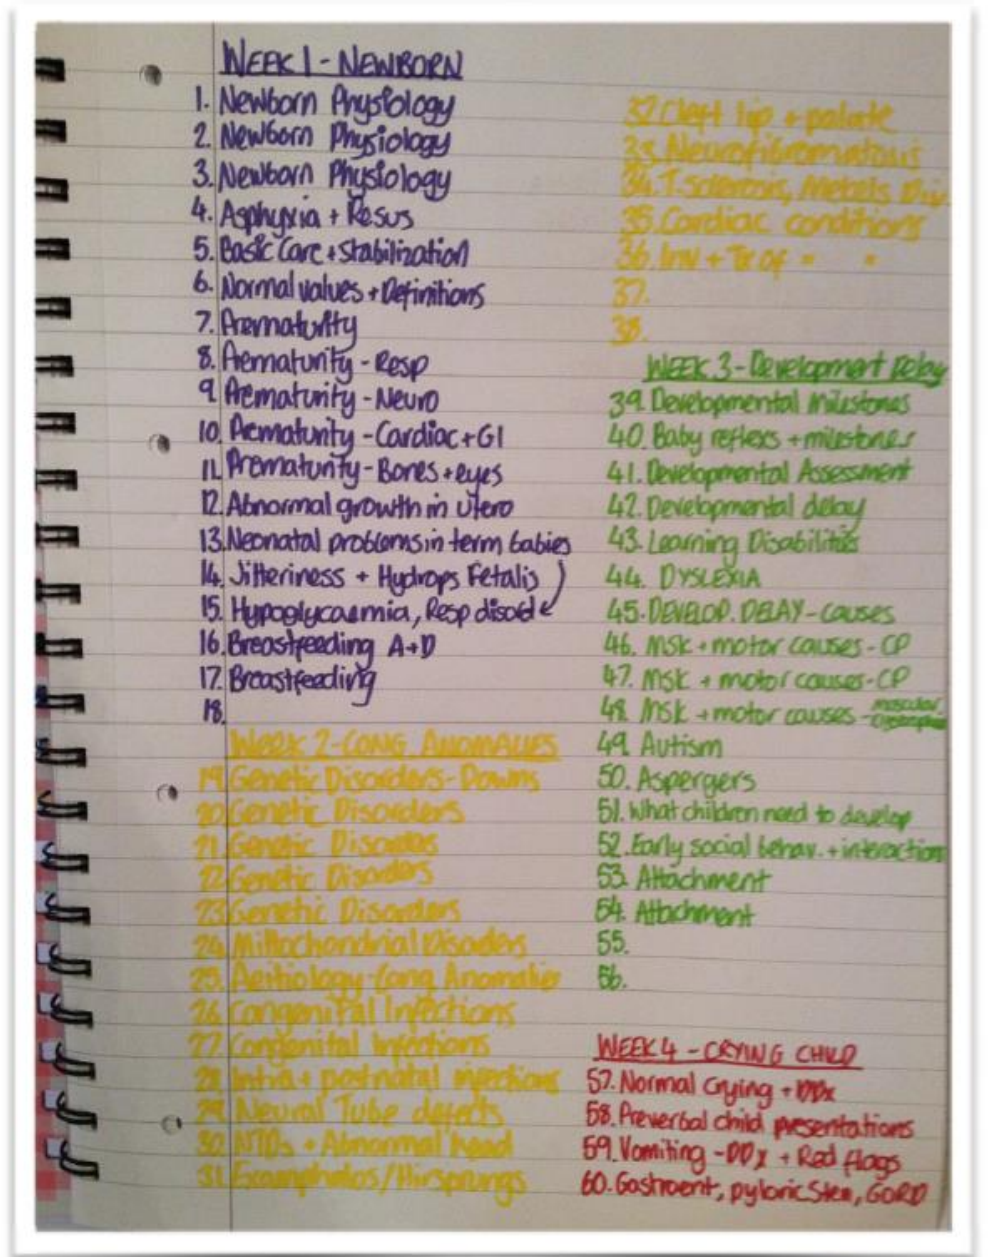 WEEK 1 - NEWBORN
1. Newborn Physiology
2. Newborn Physiology
3. Newborn Physiology
4. Asphyxia + Resus
5. Basic Care + stabilization
6. Normal values + Definitions
7. Prematurity
8. Prematurity - Resp
9. Prematurity - Neuro
10. Prematurity - Cardiac + GI
11. Prematurity - Bones + eyes
12. Abnormal growth in utero
13. Neonatal problems in term babies
14. Jitteriness + Hydrops Fetalis
15. Hypoglycaemia, Resp disord
16. Breastfeeding A+D
17. Breastfeeding
18.
WEEK 2 - CONG ANOMALIES
19. Genetic Disorders - Downs
20. Genetic Disorders
21. Genetic Disorders
22. Genetic Disorders
23. Genetic Disorders
24. Mitochondrial Disoders
25. Aeitiology - Cong Anomalies
26. Congenital Infections
27. Congenital Infections
28. Intra + postnatal infections
29. Neural Tube defects
30. NTDs + Abnormal head
31. Exomphalos/Hirsprungs
32. Cleft lip + palate
33. Neurofibromatosis
34. T.sclerosis, Meckels Div
35. Cardiac conditions
36. Inv + Tx of " "
37.
38.
WEEK 3 - Development Delay
39. Developmental milestones
40. Baby reflexs + milestones
41. Developmental Assessment
42. Developmental delay
43. Learning Disabilities
44. DYSLEXIA
45. DEVELOP. DELAY - causes
46. MSK + motor causes - CP
47. MSK + motor causes - CP
48. MSK + motor causes - muscular
49. Autism
50. Aspergers
51. What children need to develop
52. Early social behav. + interaction
53. Attachment
54. Attachment
55.
56.
WEEK 4 - CRYING CHILD
57. Normal Crying + DDx
58. Preverbal child presentations
59. Vomiting - DDx + Red flags
60. Gastroent, pyloric Sten, GORD